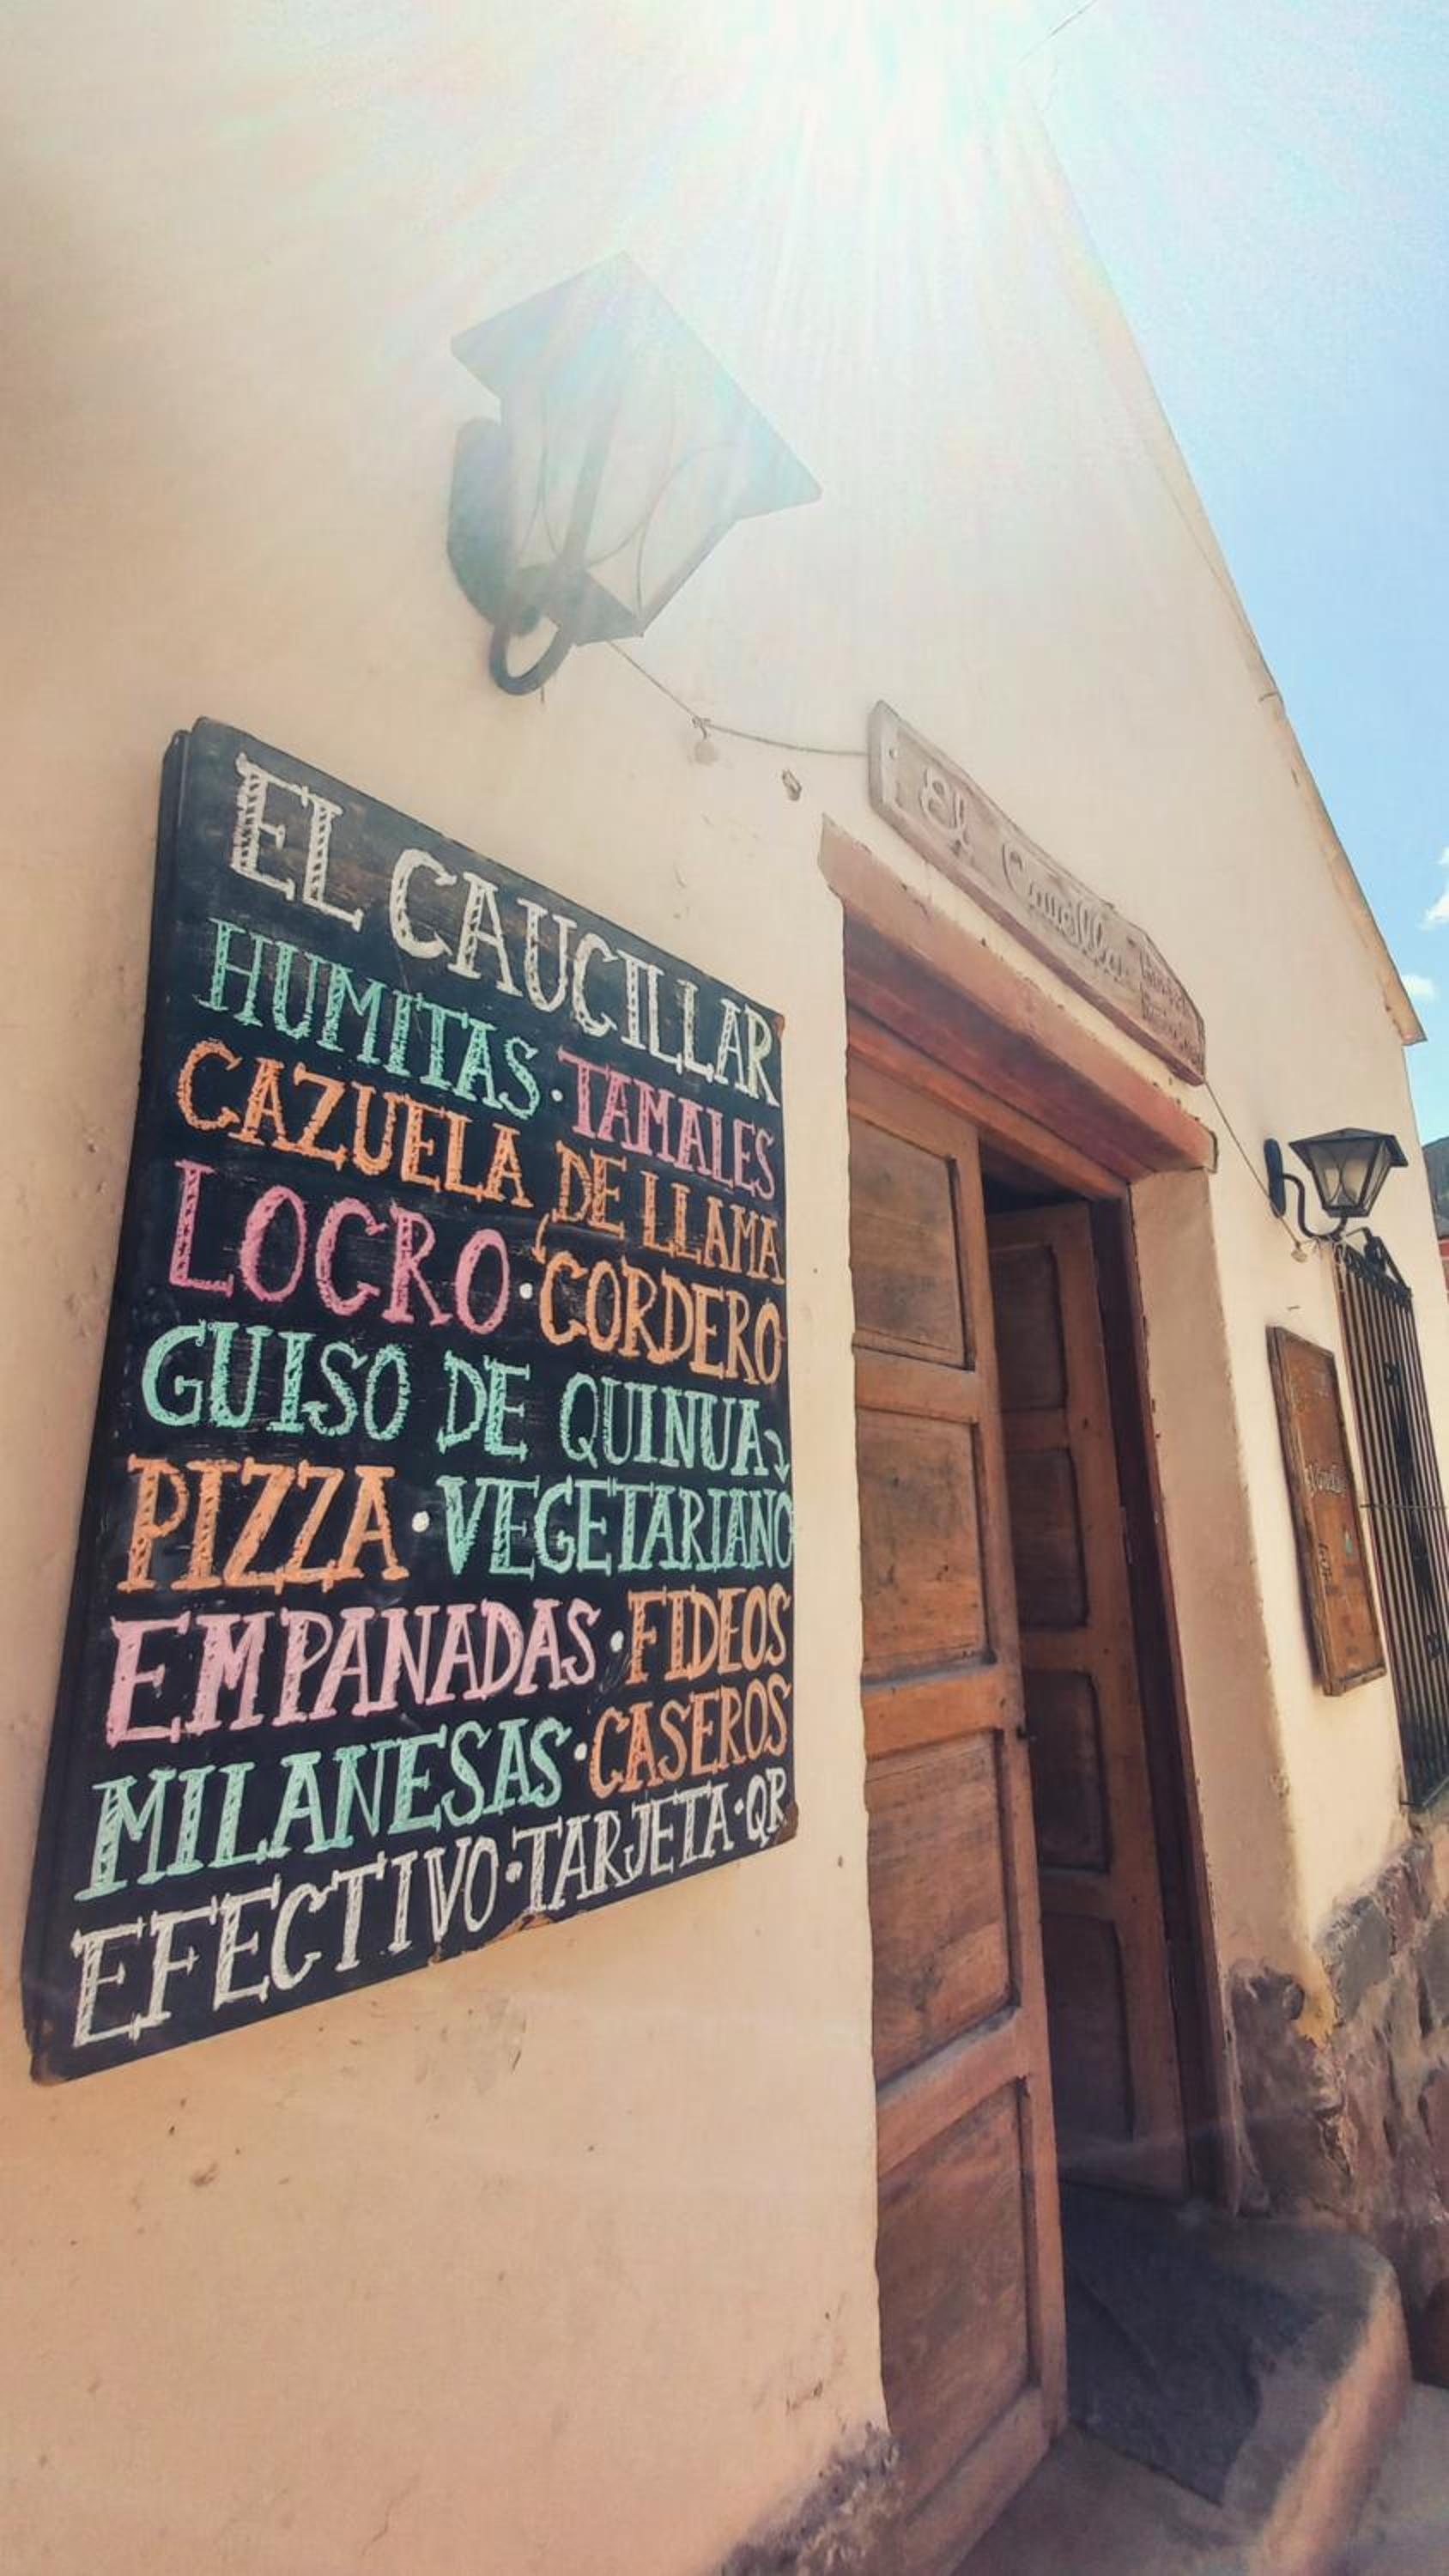 EL CAUCILLAR
HUMITAS·TAMALES
CAZUELA DE LLAMA
LOCRO·(CORDERO
GUISO DE QUINUA
PIZZA·VEGETARIANO
EMPANADAS·FIDEOS
MILANESAS·CASEROS
EFECTIVO·TARJETA·QR
El